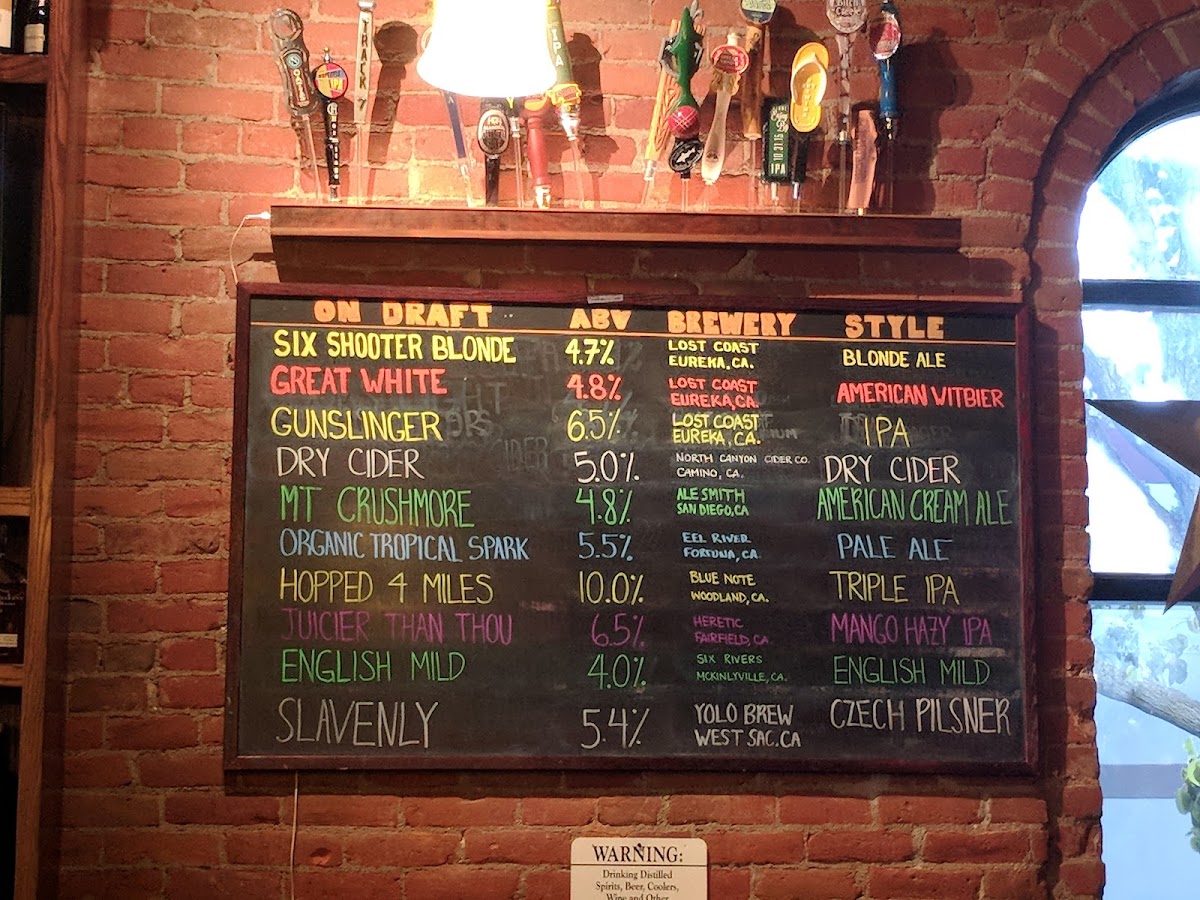 IPA
Enjoy By
10.31.15
IPA
ON DRAFT ABV BREWERY STYLE
SIX SHOOTER BLONDE 4.7% LOST COAST EUREKA, CA. BLONDE ALE
GREAT WHITE 4.8% LOST COAST EUREKA, CA. AMERICAN WITBIER
GUNSLINGER 6.5% LOST COAST EUREKA, CA. IPA
DRY CIDER 5.0% NORTH CANYON CIDER CO. CAMINO, CA. DRY CIDER
MT CRUSHMORE 4.8% ALE SMITH SAN DIEGO, CA AMERICAN CREAM ALE
ORGANIC TROPICAL SPARK 5.5% EEL RIVER FORTUNA, CA. PALE ALE
HOPPED 4 MILES 10.0% BLUE NOTE WOODLAND, CA. TRIPLE IPA
JUICIER THAN THOU 6.5% HERETIC FAIRFIELD, CA MANGO HAZY IPA
ENGLISH MILD 4.0% SIX RIVERS MCKINLYVILLE, CA. ENGLISH MILD
SLAVENLY 5.4% YOLO BREW WEST SAC. CA CZECH PILSNER
WARNING:
Drinking Distilled
Spirits, Beer, Coolers,
Wine and Other